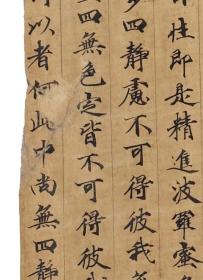 性即是精進波羅蜜多
四靜慮不可得彼我
四無色定皆不可得彼我
可以者何此中尚無四靜